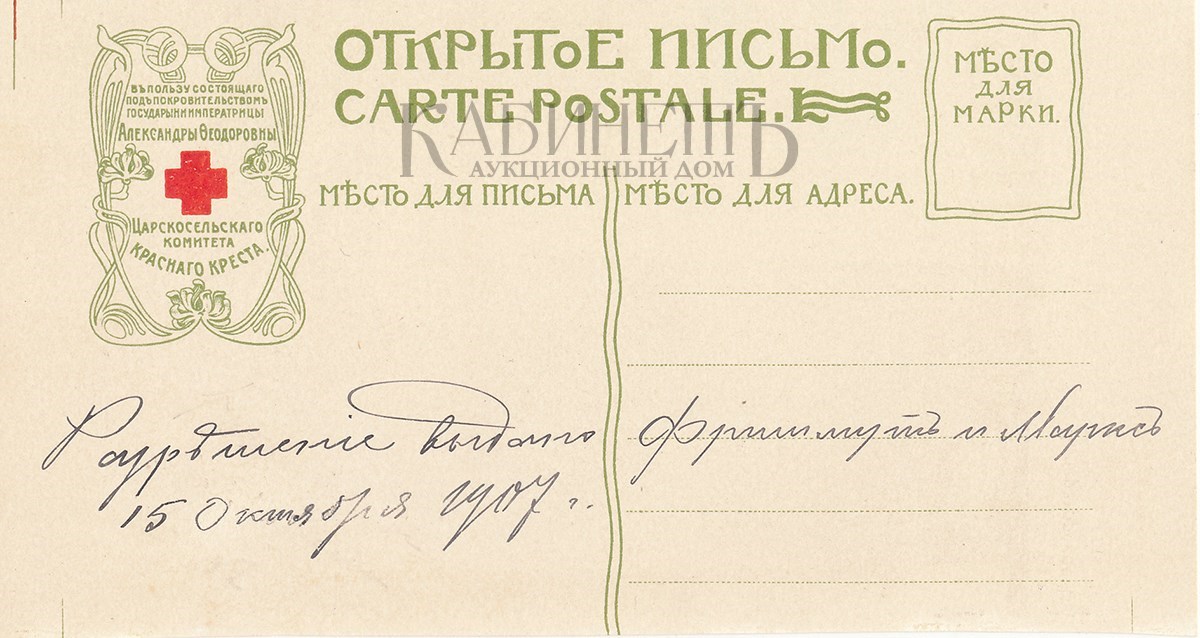 ВЪ ПОЛЬЗУ СОСТОЯЩАГО
ПОДЪ ПОКРОВИТЕЛЬСТВОМЪ
ГОСУДАРЫНИ ИМПЕРАТРИЦЫ
АЛЕКСАНДРЫ ѲЕОДОРОВНЫ
ЦАРСКОСЕЛЬСКАГО
КОМИТЕТА
КРАСНАГО КРЕСТА.
ОТКРЫТОЕ ПИСЬМО.
CARTE POSTALE.
КАБИНЕТЪ
АУКЦИОННЫЙ ДОМ
МѢСТО
ДЛЯ
МАРКИ.
МѢСТО ДЛЯ ПИСЬМА
МѢСТО ДЛЯ АДРЕСА.
Разрѣшеніе выдано
15 Октября 1907 г.
Фришмутъ и Марксъ